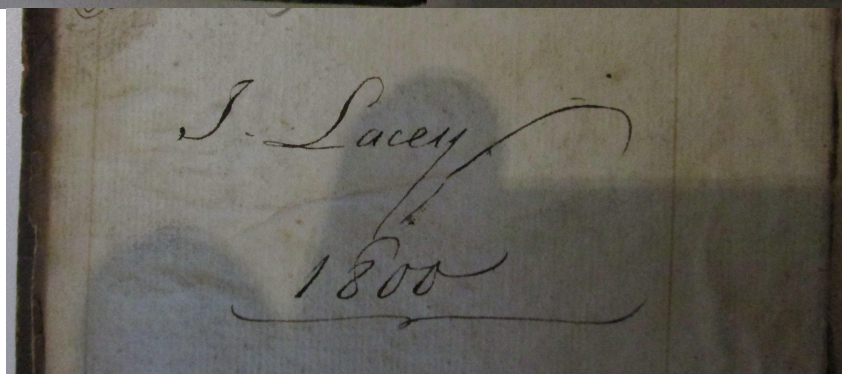 J. Lacey
1800